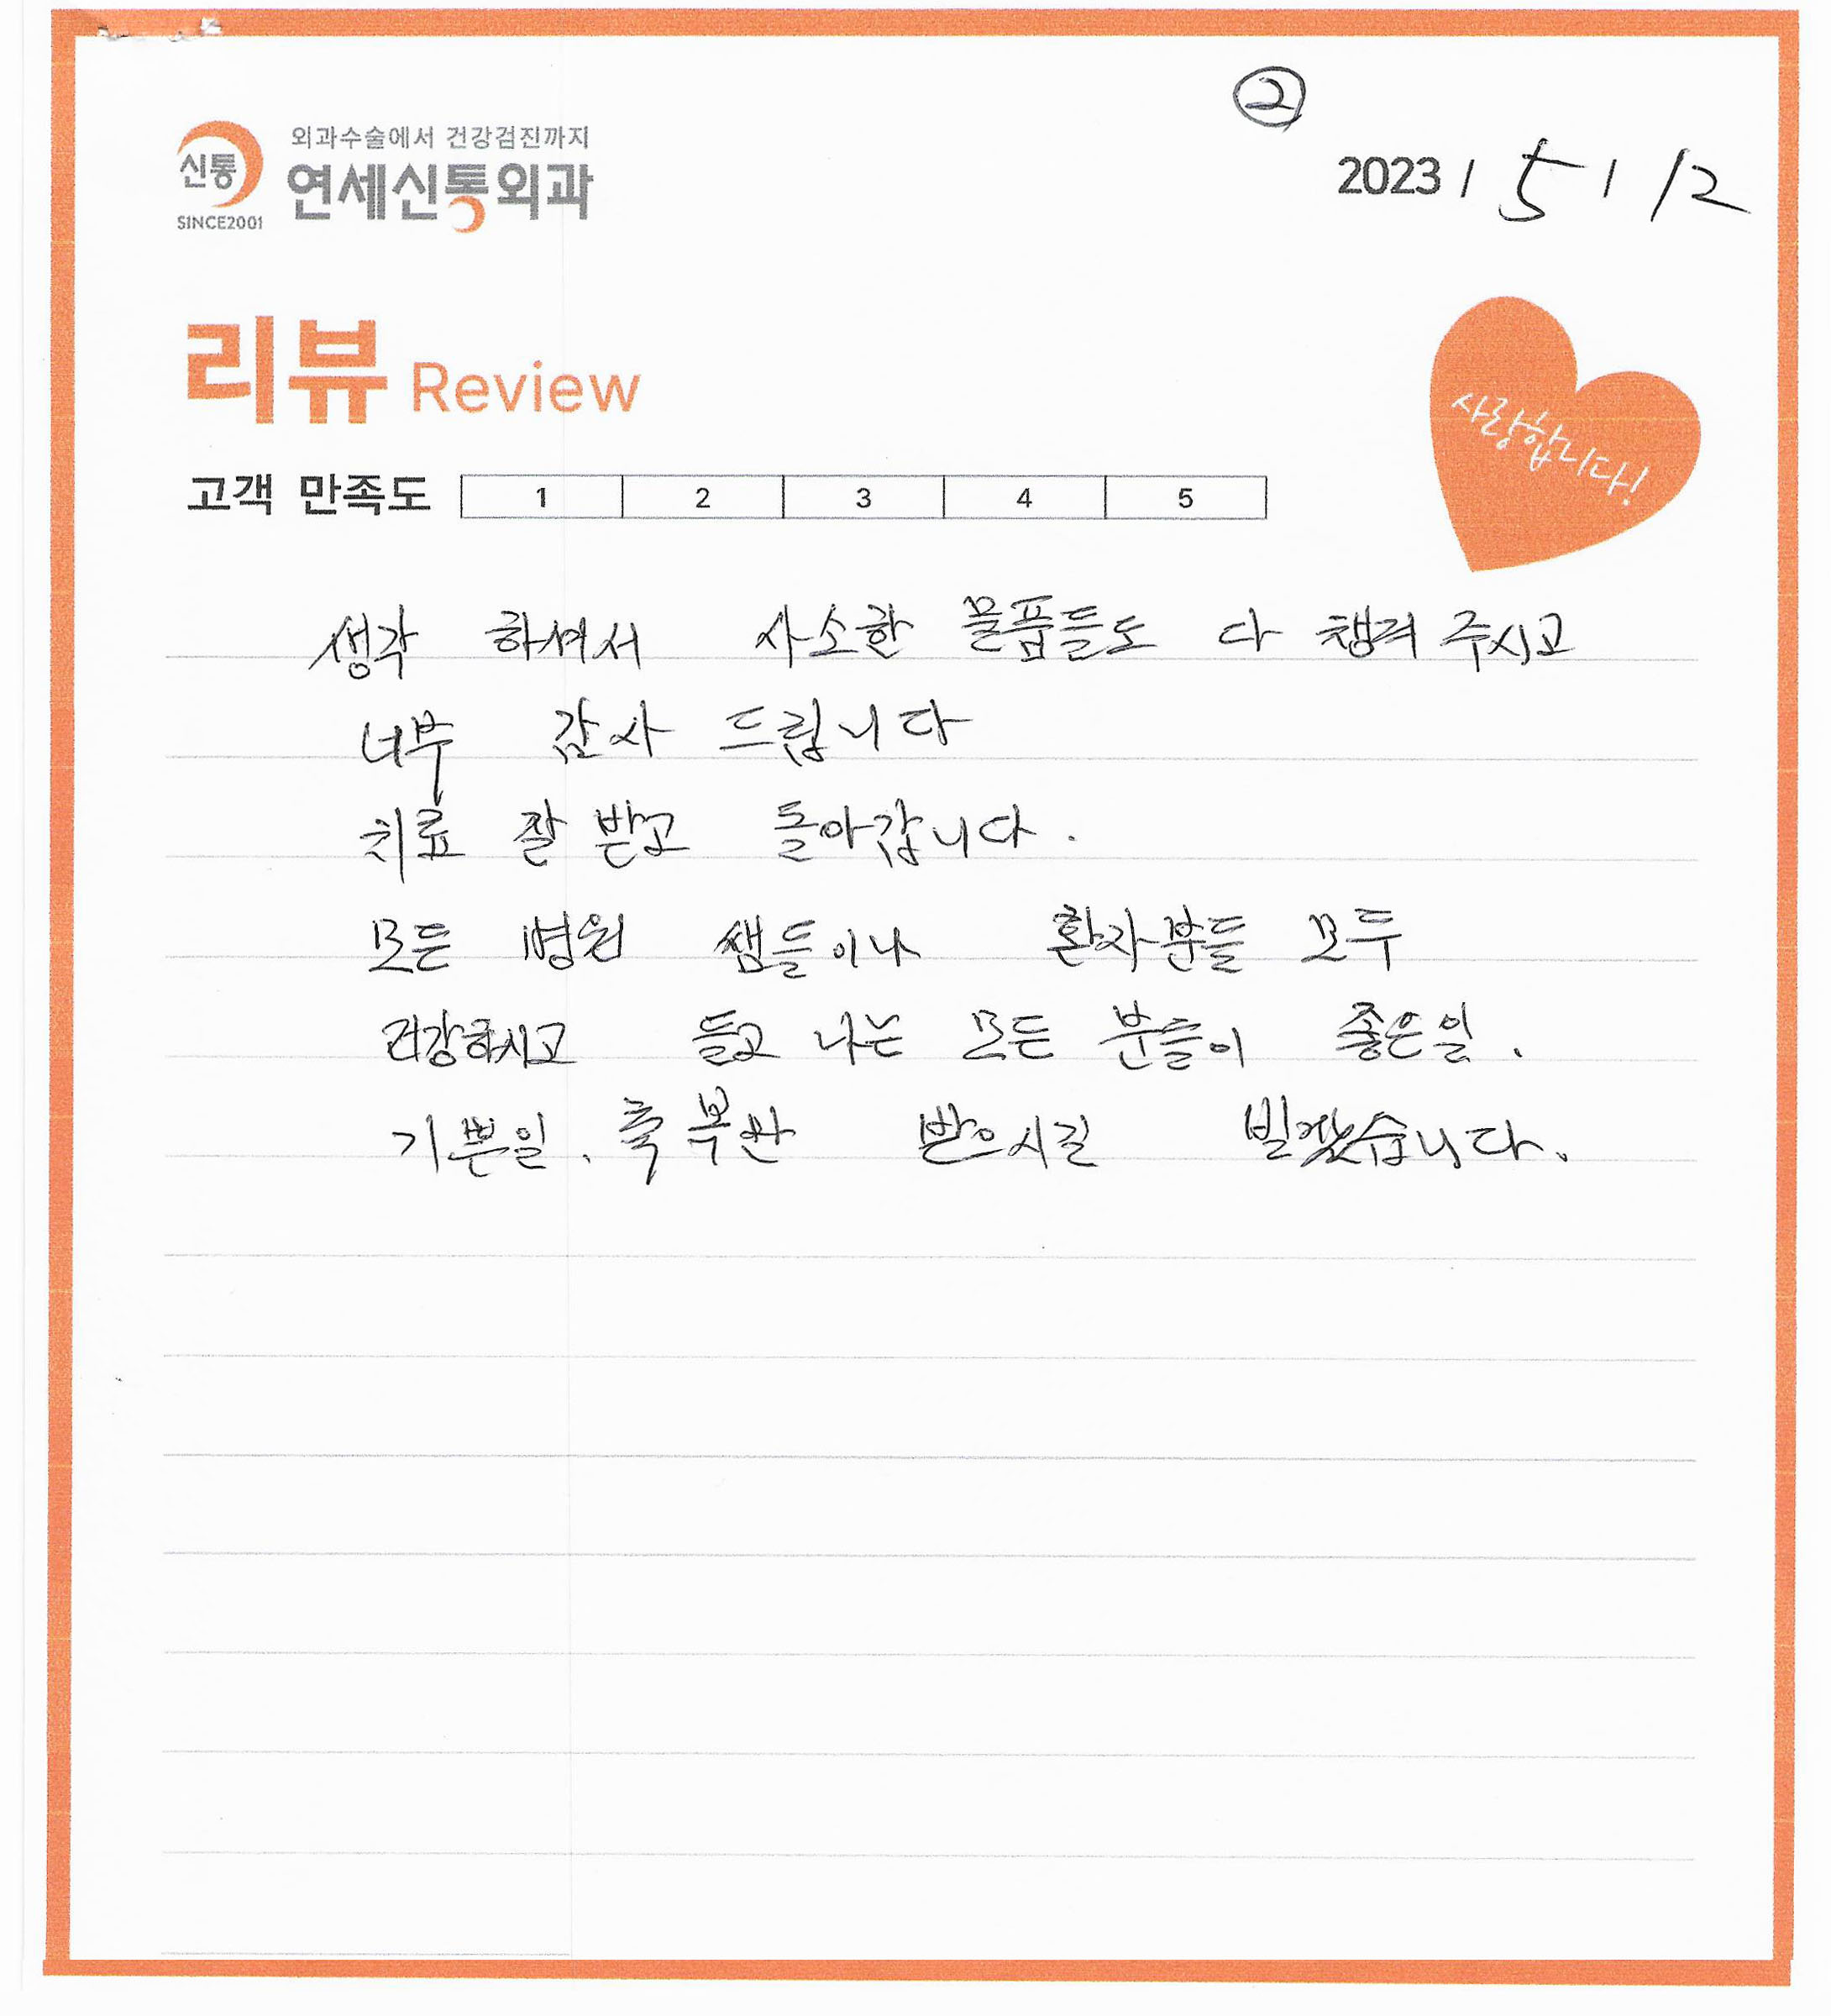 ②
외과수술에서 건강검진까지
신통 연세신통외과
SINCE2001
2023 / 5 / 12
리뷰 Review
사랑합니다!
고객 만족도 1 2 3 4 5
생각 하셔서 사소한 물품들도 다 챙겨 주시고
너무 감사 드립니다
치료 잘 받고 돌아갑니다.
모든 병원 쌤들이나 환자분들 모두
건강하시고 들고 나는 모든 분들이 좋은일.
기쁜일. 축복만 받으시길 빌겠습니다.